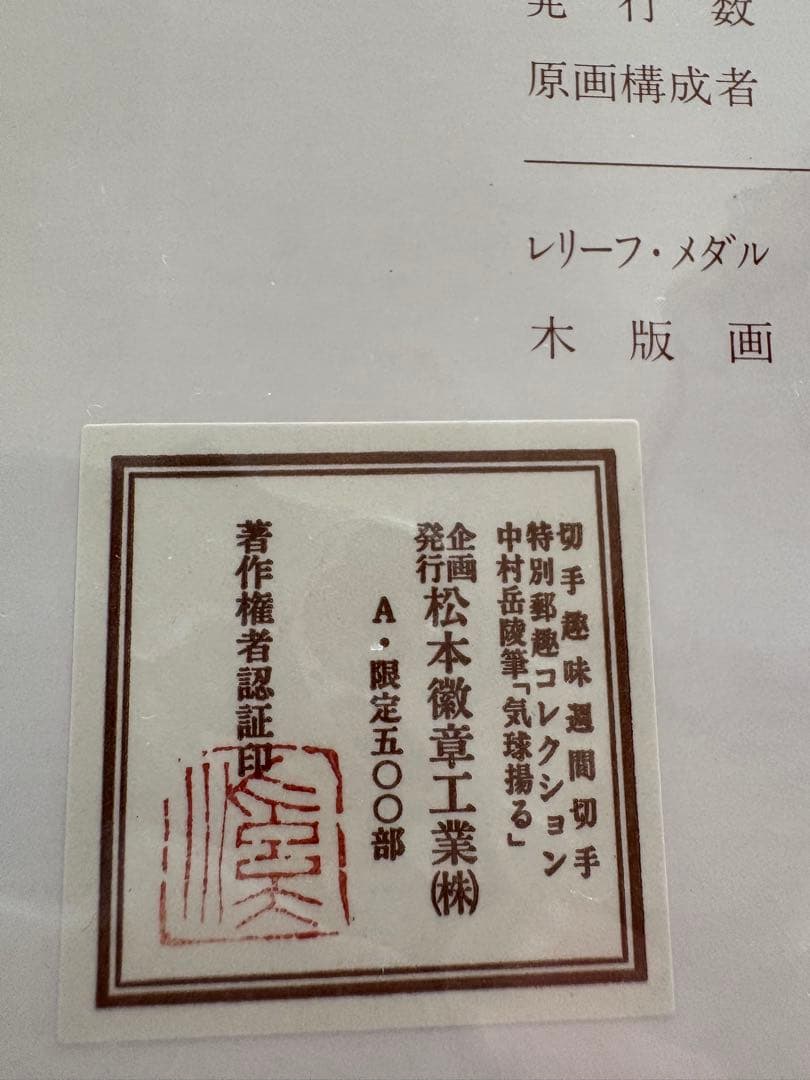 発行数
原画構成者
レリーフ・メダル
木版画
切手趣味週間切手
特別郵趣コレクション
中村岳陵筆「気球揚る」
企画
発行
松本徽章工業(株)
A・限定五〇〇部
著作権者認証印